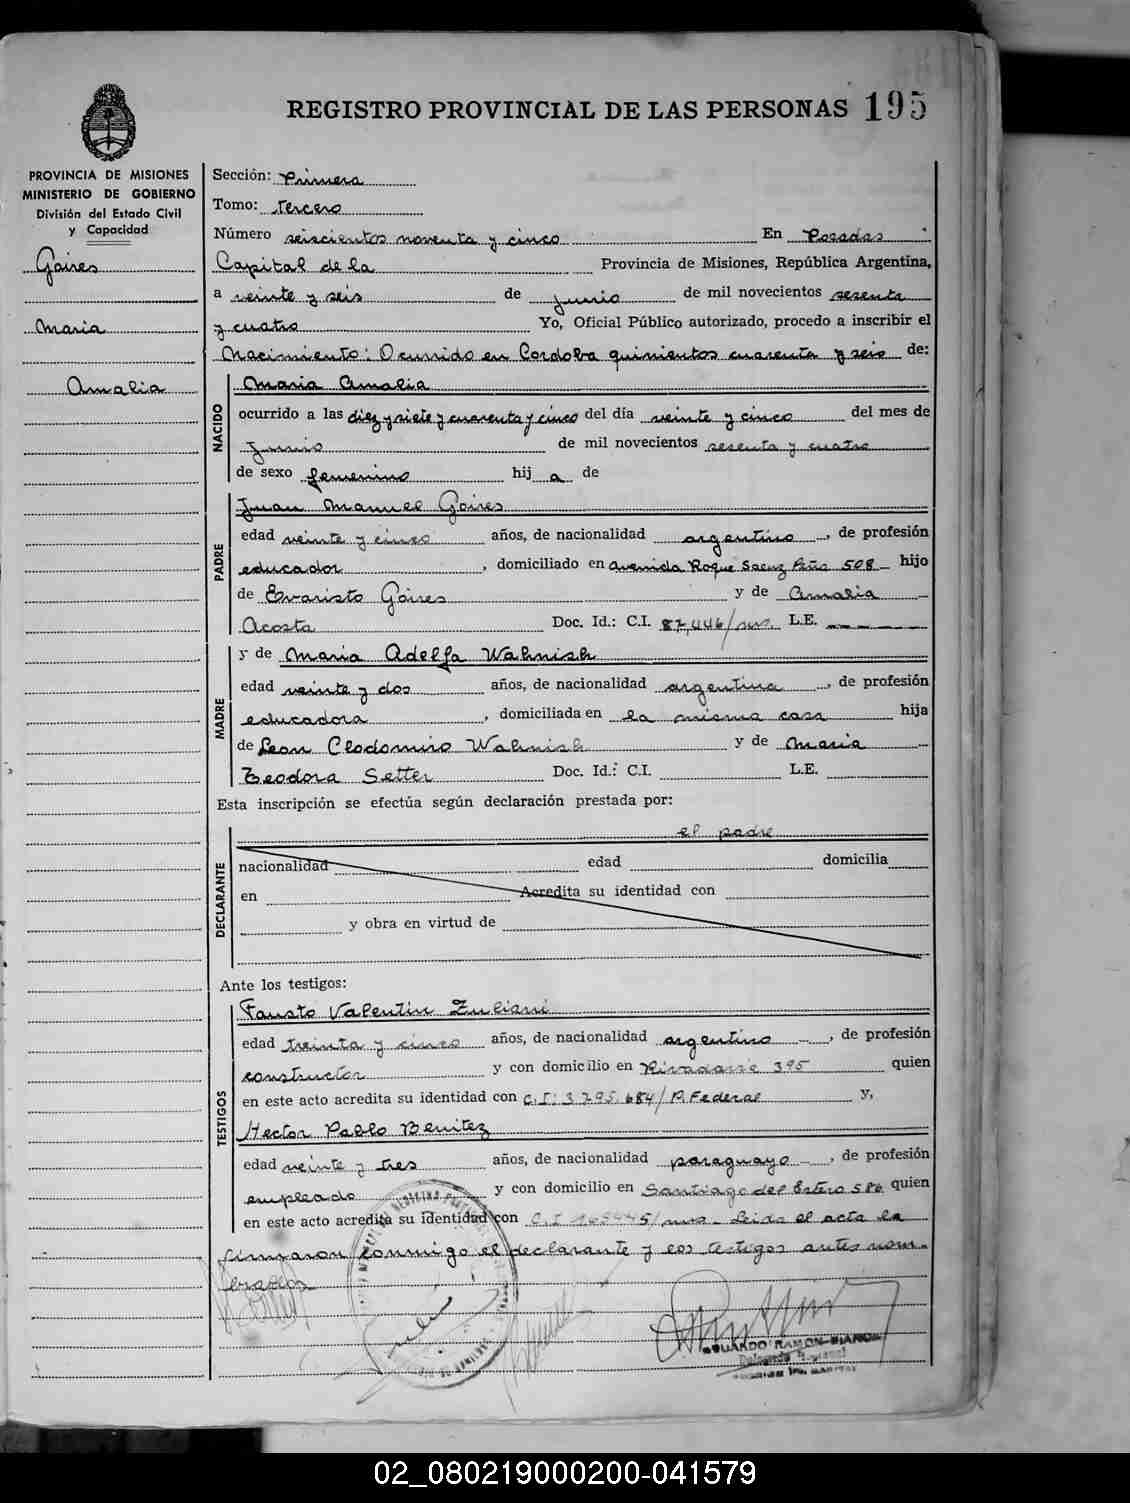 REGISTRO PROVINCIAL DE LAS PERSONAS 195
PROVINCIA DE MISIONES
MINISTERIO DE GOBIERNO
División del Estado Civil
y Capacidad
Goires
Maria
Amalia
Sección: Primera
Tomo: tercero
Número seiscientos noventa y cinco En Posadas
Capital de la Provincia de Misiones, República Argentina,
a veinte y seis de junio de mil novecientos sesenta
y cuatro Yo, Oficial Público autorizado, procedo a inscribir el
Nacimiento: Ocurrido en Cordoba quinientos cuarenta y seis de:
NACIDO
Maria Amalia
ocurrido a las diez y siete y cuarenta y cinco del día veinte y cinco del mes de
Junio de mil novecientos sesenta y cuatro
de sexo femenino hij a de
PADRE
Juan Manuel Goires
edad veinte y cinco años, de nacionalidad argentino, de profesión
educador, domiciliado en avenida Roque Saenz Peña 508 hijo
de Evaristo Goires y de Amalia
Acosta Doc. Id.: C.I. 87,446/ms. L.E. — — — — —
MADRE
y de Maria Adelfa Wahnish
edad veinte y dos años, de nacionalidad argentina, de profesión
educadora, domiciliada en la misma casa hija
de Leon Clodomiro Wahnish y de Maria
Teodora Setter Doc. Id.: C.I. L.E.
Esta inscripción se efectúa según declaración prestada por:
el padre
DECLARANTE
nacionalidad edad domicilia
en Acredita su identidad con
y obra en virtud de
Ante los testigos:
TESTIGOS
Fausto Valentin Zuliani
edad treinta y cinco años, de nacionalidad argentino, de profesión
constructor y con domicilio en Rivadavia 395 quien
en este acto acredita su identidad con C.I: 3.795.684/P. Federal y,
Hector Pablo Benitez
edad veinte y tres años, de nacionalidad paraguayo, de profesión
empleado y con domicilio en Santiago del Estero 586 quien
en este acto acredita su identidad con C.I. /ms. Leida el acta la
firmaron conmigo el declarante y los testigos antes nom-
brados
EDUARDO RAMON
02_080219000200-041579